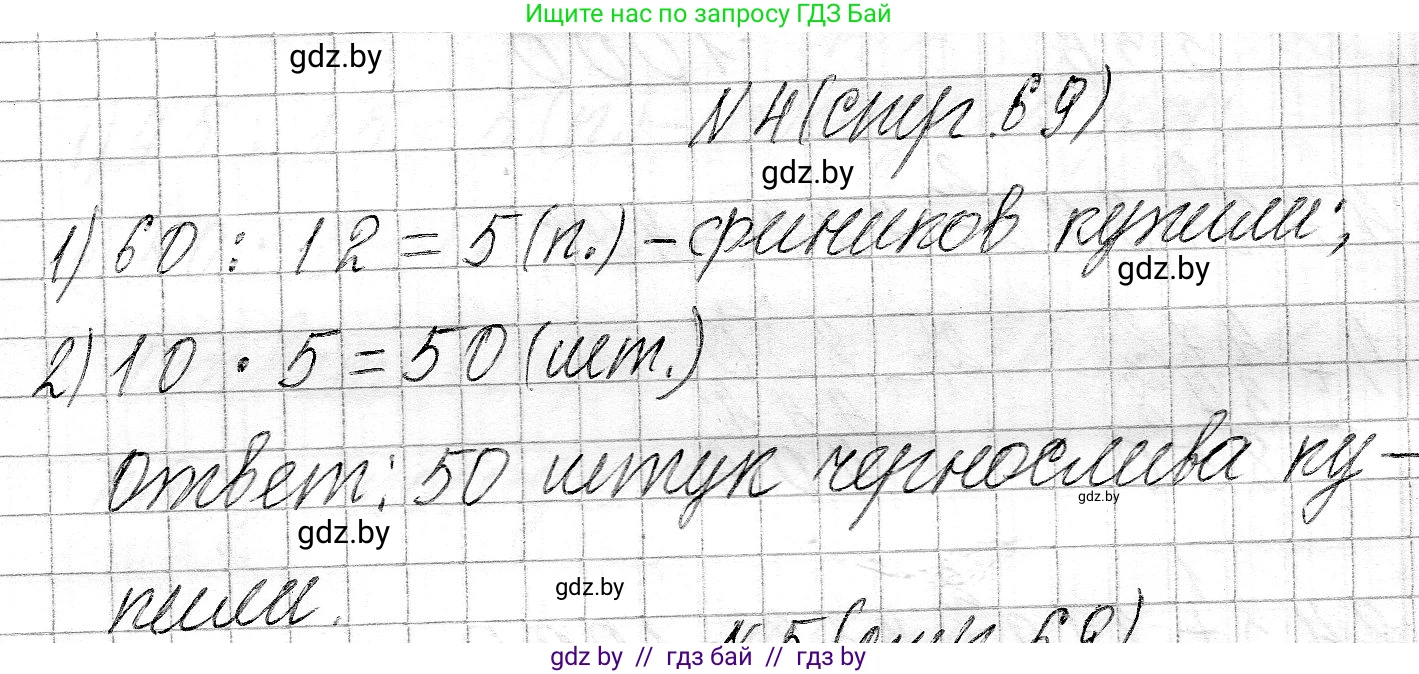 Ищите нас по запросу ГДЗ Бай
gdz.by
N 4 (стр. 69)
gdz.by
1) 60 : 12 = 5 (п.) - фиников купили;
gdz.by
2) 10 · 5 = 50 (шт.)
ответ: 50 штук чернослива ку-
gdz.by
gdz.by
пили.
gdz.by
N 5 (стр. 69)
gdz by // гдз бай // гдз by